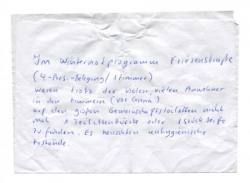 Im Winternotprogramm Friesenstraße
(4-Pers.-Belegung / Zimmer)
waren trotz der vielen, vielen Anwohner
in den Zimmern (vor Corona)
auf den großen Gemeinschaftstoiletten nicht
mal 1 Toilettenbürste oder 1 Stück Seife
zu finden. Es herrschten unhygienische
Zustände.